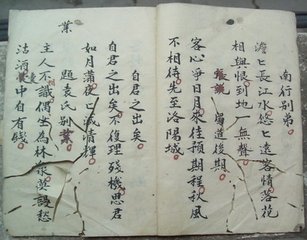 南行别弟
澹〻長江水悠〻遠客情落花
相與恨到地一無聲
蜀道後期
客心争日月來往預期程秋風
不相待先至洛陽城
自君之出矣
自君之出矣不復理殘機思君
如月滿夜〻減清輝
題袁氏别業
業
主人不識偶坐為林泉莫謾愁
沽酒囊中自有錢